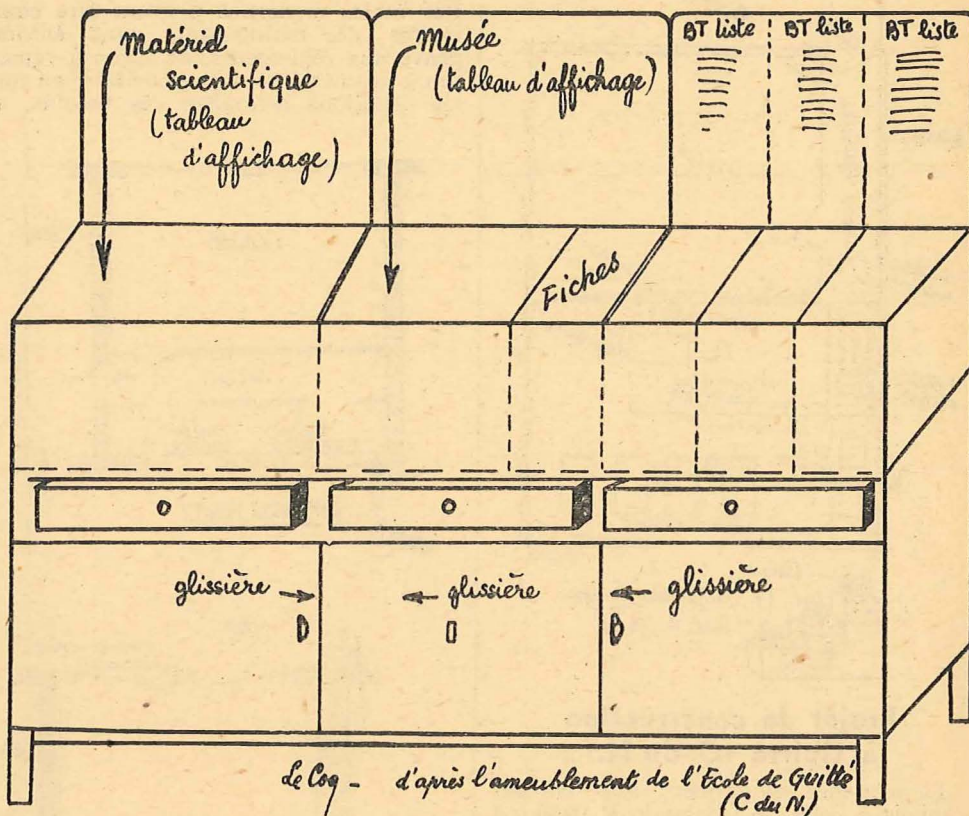 Matériel
scientifique
(tableau
d'affichage)
Musée
(tableau d'affichage)
BT liste
BT liste
BT liste
Fiches
glissière
glissière
glissière
Le Coq - d'après l'ameublement de l'Ecole de Guitté
(C du N.)